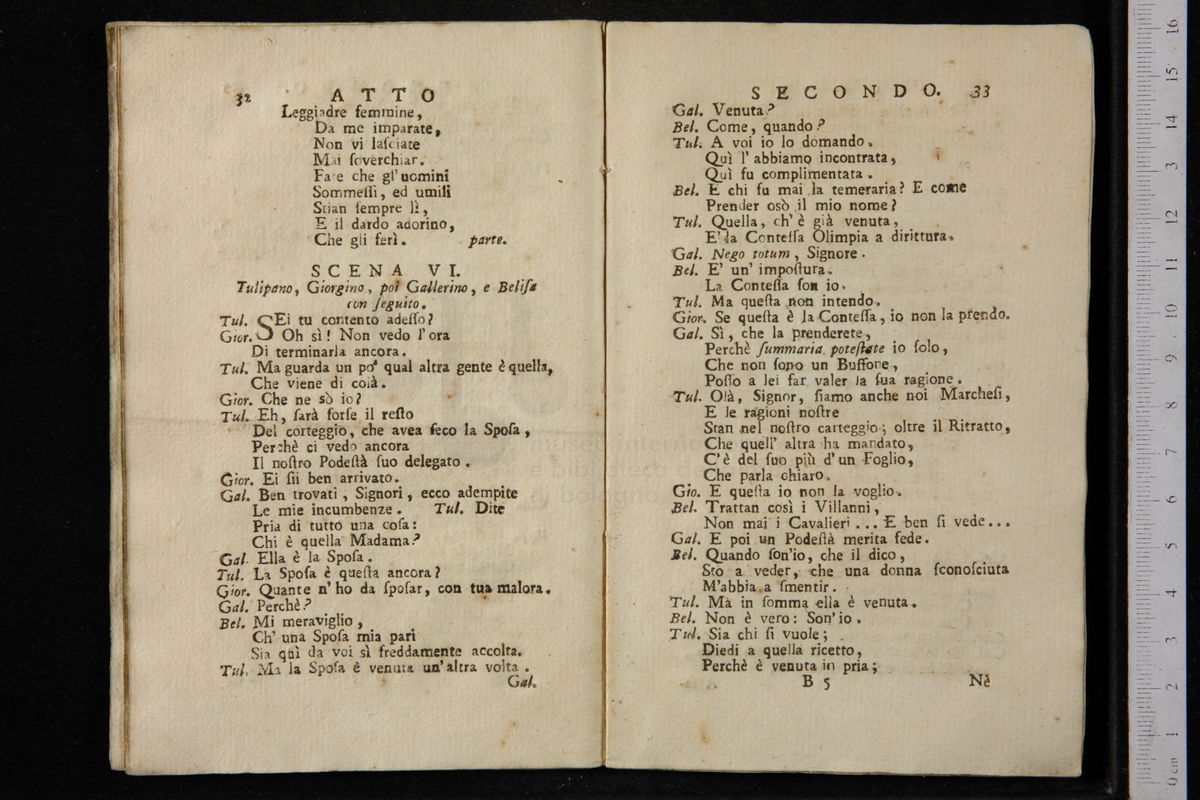 32 ATTO
Leggiadre femmine,
Da me imparate,
Non vi laſciate
Mai ſoverchiar.
Fate che gl'uomini
Sommeſſi, ed umili
Stian ſempre lì,
E il dardo adorino,
Che gli ferì. parte.
SCENA VI.
Tulipano, Giorgino, poi Gallerino, e Beliſa
con ſeguito.
Tul. SEi tu contento adeſſo?
Gior. Oh sì! Non vedo l'ora
Di terminarla ancora.
Tul. Ma guarda un po' qual altra gente è quella,
Che viene di colà.
Gior. Che ne sò io?
Tul. Eh, ſarà forſe il reſto
Del corteggio, che avea ſeco la Spoſa,
Perchè ci vedo ancora
Il noſtro Podeſtà ſuo delegato.
Gior. Ei ſii ben arrivato.
Gal. Ben trovati, Signori, ecco adempite
Le mie incumbenze. Tul. Dite
Pria di tutto una coſa:
Chi è quella Madama?
Gal. Ella è la Spoſa.
Tul. La Spoſa è queſta ancora?
Gior. Quante n'ho da ſpoſar, con tua malora.
Gal. Perchè?
Bel. Mi meraviglio,
Ch' una Spoſa mia pari
Sia quì da voi sì freddamente accolta.
Tul. Ma la Spoſa è venuta un'altra volta.
Gal.
SECONDO. 33
Gal. Venuta?
Bel. Come, quando?
Tul. A voi io lo domando.
Quì l'abbiamo incontrata,
Quì fu complimentata.
Bel. E chi fu mai la temeraria? E come
Prender osò il mio nome?
Tul. Quella, ch'è già venuta,
E' la Conteſſa Olimpia a dirittura.
Gal. Nego totum, Signore.
Bel. E' un' impoſtura.
La Conteſſa ſon io.
Tul. Ma queſta non intendo.
Gior. Se queſta è la Conteſſa, io non la prendo.
Gal. Sì, che la prenderete,
Perchè ſummaria poteſtate io ſolo,
Che non ſono un Buffone,
Poſſo a lei far valer la ſua ragione.
Tul. Olà, Signor, ſiamo anche noi Marcheſi,
E le ragioni noſtre
Stan nel noſtro carteggio; oltre il Ritratto,
Che quell' altra ha mandato,
C'è del ſuo più d'un Foglio,
Che parla chiaro.
Gio. E queſta io non la voglio.
Bel. Trattan così i Villanni,
Non mai i Cavalieri... E ben ſi vede...
Gal. E poi un Podeſtà merita fede.
Bel. Quando ſon'io, che il dico,
Sto a veder, che una donna ſconoſciuta
M'abbia a ſmentir.
Tul. Ma in ſomma ella è venuta.
Bel. Non è vero: Son'io.
Tul. Sia chi ſi vuole;
Diedi a quella ricetto,
Perchè è venuta in pria;
B 5 Nè